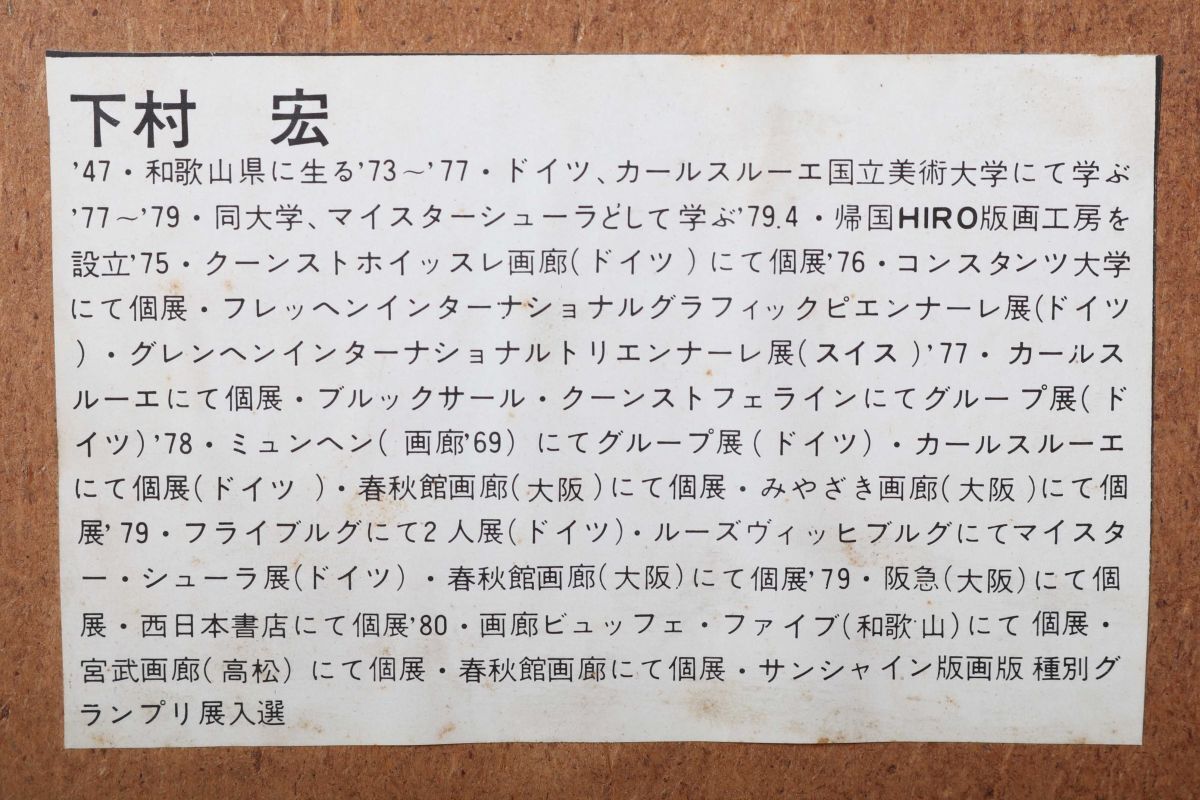 下村　宏
'47・和歌山県に生る'73〜'77・ドイツ、カールスルーエ国立美術大学にて学ぶ
'77〜'79・同大学、マイスターシューラとして学ぶ'79.4・帰国HIRO版画工房を
設立'75・クーンストホイッスレ画廊(ドイツ)にて個展'76・コンスタンツ大学
にて個展・フレッヘンインターナショナルグラフィックピエンナーレ展(ドイツ
)・グレンヘンインターナショナルトリエンナーレ展(スイス)'77・カールス
ルーエにて個展・ブルックサール・クーンストフェラインにてグループ展(ド
イツ)'78・ミュンヘン(画廊'69)にてグループ展(ドイツ)・カールスルーエ
にて個展(ドイツ)・春秋館画廊(大阪)にて個展・みやざき画廊(大阪)にて個
展'79・フライブルグにて2人展(ドイツ)・ルーズヴィッヒブルグにてマイスタ
ー・シューラ展(ドイツ)・春秋館画廊(大阪)にて個展'79・阪急(大阪)にて個
展・西日本書店にて個展'80・画廊ビュッフェ・ファイブ(和歌山)にて個展・
宮武画廊(高松)にて個展・春秋館画廊にて個展・サンシャイン版画版種別グ
ランプリ展入選